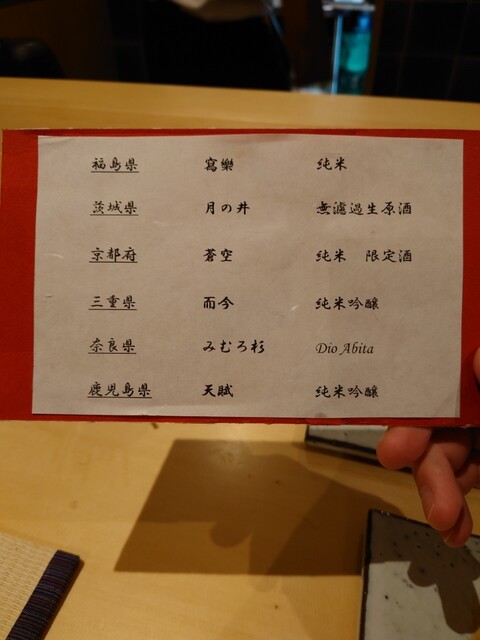 福島県 寫樂 純米
茨城県 月の井 無濾過生原酒
京都府 蒼空 純米 限定酒
三重県 而今 純米吟醸
奈良県 みむろ杉 Dio Abita
鹿児島県 天賦 純米吟醸